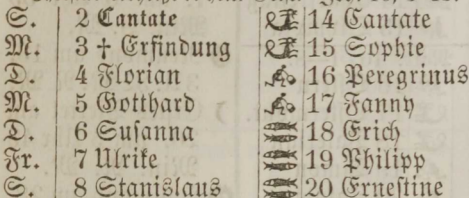 S. 2 Cantate 14 Cantate
M. 3 † Erfindung 15 Sophie
D. 4 Florian 16 Peregrinus
M. 5 Gotthard 17 Fanny
D. 6 Suſanna 18 Erich
Fr. 7 Ulrike 19 Philipp
S. 8 Stanislaus 20 Erneſtine